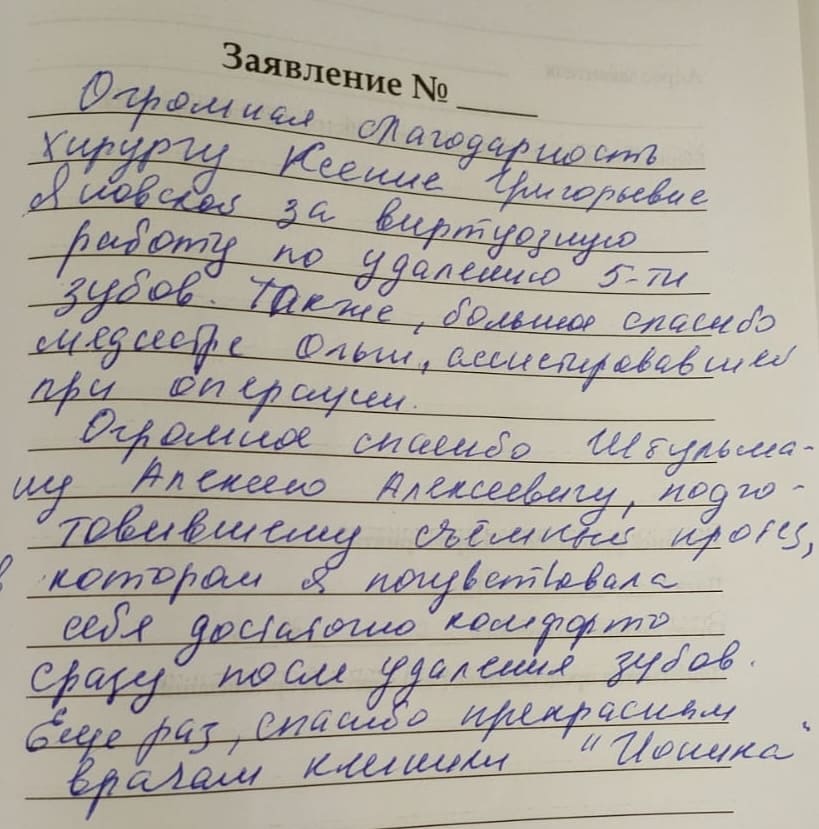 Заявление № ____
Огромная благодарность
хирургу Ксение Григорьевне
Яновской за виртуозную
работу по удалению 5-ти
зубов. Также, большое спасибо
медсестре Ольги, ассистировавшей
при операции.
Огромное спасибо Штульма-
ну Алексею Алексеевичу, подго-
товившему съёмный протез,
в котором я почувствовала
себя достаточно комфорто
сразу после удаления зубов.
Еще раз, спасибо прекрасным
врачам клиники "Ионика"